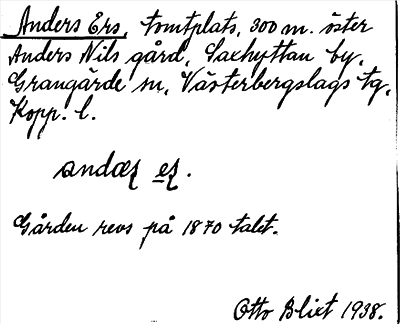 Anders Ers, tomtplats, 300 m. öster
Anders Nils gård, Saxhyttan by,
Grangärde sn, Västerbergslags tg,
Kopp. l.
andæʂ eʂ.
Gården revs på 1870 talet.
Otto Blixt 1938.